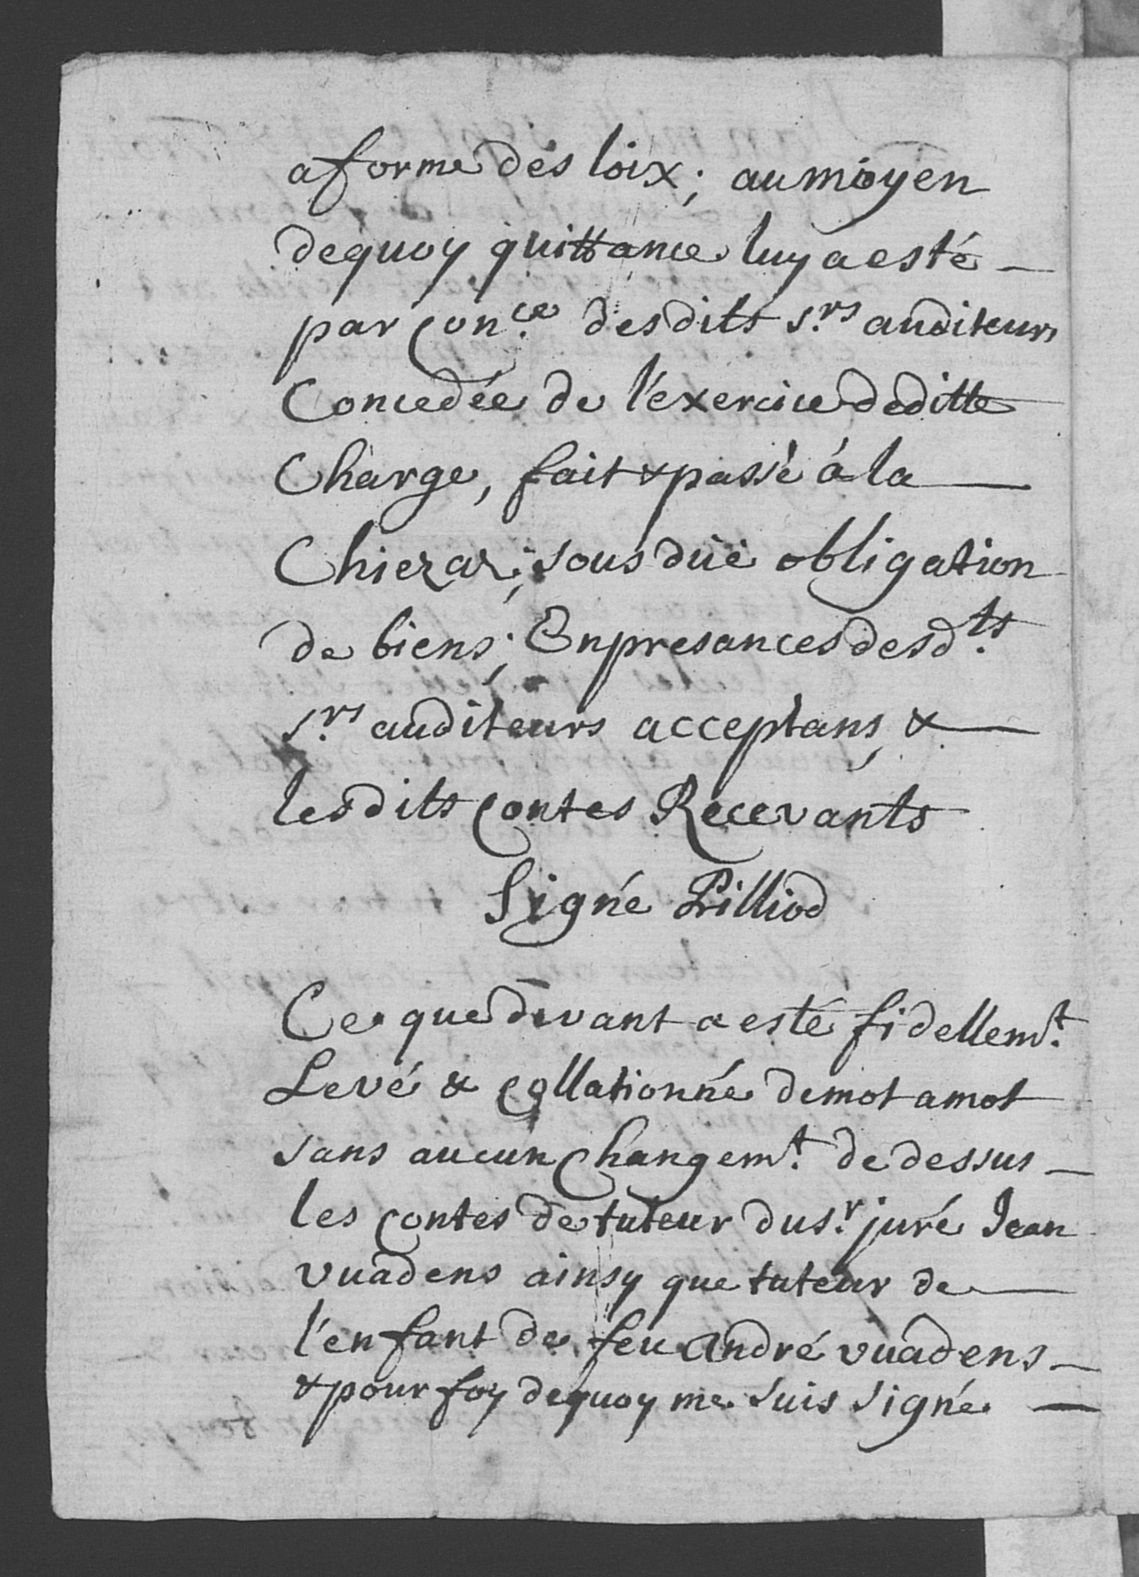 a forme des loix; au moyen
dequoy quittance luy a esté
par con.ce desdits s.rs auditeurs
Concedée de l'exercice de ditte
Charge, fait & passé à la
Chiezaz; sous düe obligation
de biens; En presances desd.ts
s.rs auditeurs acceptans, &
lesdits contes Recevants
Signé Pilliod
Ce que devant a esté fidellem.t
Levé & collationné de mot a mot
sans aucun changem.t de dessus
les contes de tuteur du s.r juré Jean
vuadens ainsy que tuteur de
l'enfant de feu André vuadens
& pour foy dequoy me suis signé